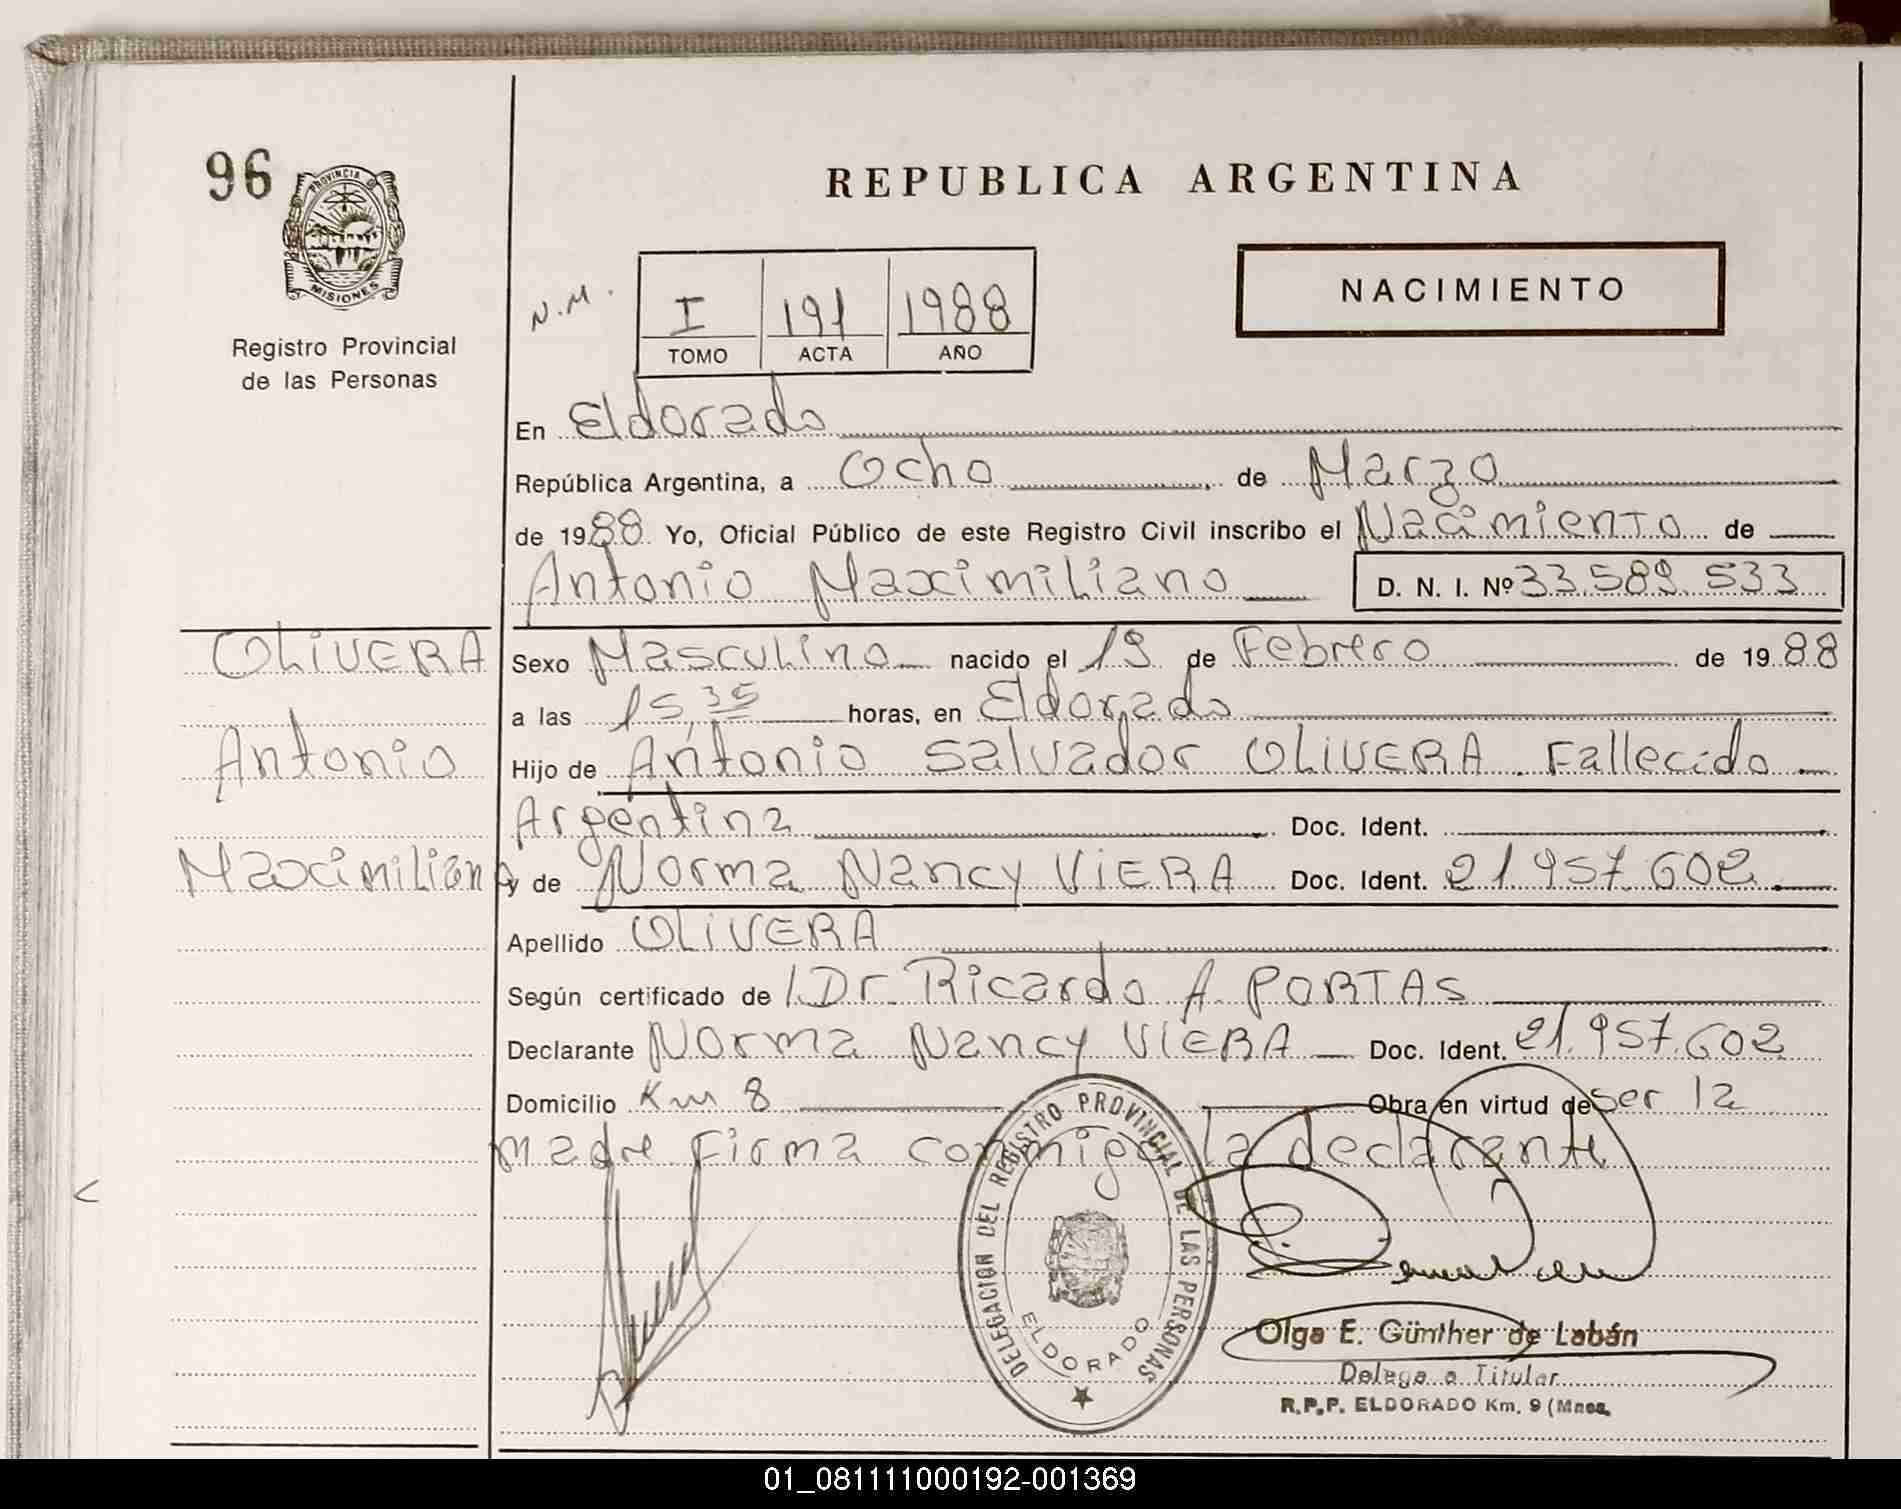 96
PROVINCIA DE
MISIONES
Registro Provincial
de las Personas
REPUBLICA ARGENTINA
NACIMIENTO
N.M.
I 191 1988
TOMO ACTA AÑO
En Eldorado
República Argentina, a Ocho de Marzo
de 1988 Yo, Oficial Público de este Registro Civil inscribo el Nacimiento de
Antonio Maximiliano D. N. I. Nº 33.589.533
OLIVERA
Antonio
Maximiliano
Sexo Masculino nacido el 19 de Febrero de 1988
a las 15,35 horas, en Eldorado
Hijo de Antonio Salvador OLIVERA. Fallecido
Argentina Doc. Ident.
y de Norma Nancy VIERA Doc. Ident. 21.957.602
Apellido OLIVERA
Según certificado de Dr. Ricardo A. PORTAS
Declarante Norma Nancy VIERA Doc. Ident. 21.957.602
Domicilio Km 8 Obra en virtud de ser la
madre Firma conmigo la declarante
DELEGACION DEL REGISTRO PROVINCIAL DE LAS PERSONAS
ELDORADO
Olga E. Günther de Labán
Delega a Titular
R.P.P. ELDORADO Km. 9 (Mnes.
01_081111000192-001369